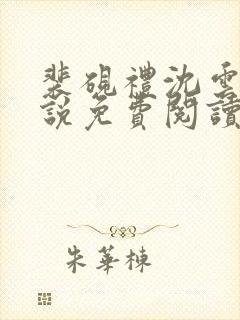 裴硯禮沈雲
說免費閱讀
朱華棟